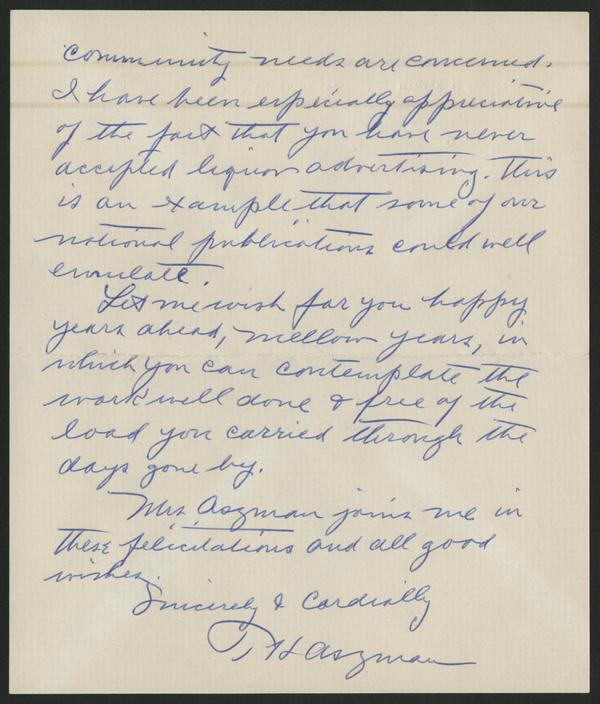 community needs are concerned.
I have been especially appreciative
of the fact that you have never
accepted liquor advertising. This
is an example that some of our
national publications could well
emulate.
Let me wish for you happy
years ahead, mellow years, in
which you can contemplate the
work well done & free of the
load you carried through the
days gone by.
Mrs Aszman joins me in
these felicitations and all good
wishes.
Sincerely & Cordially
T H Aszman